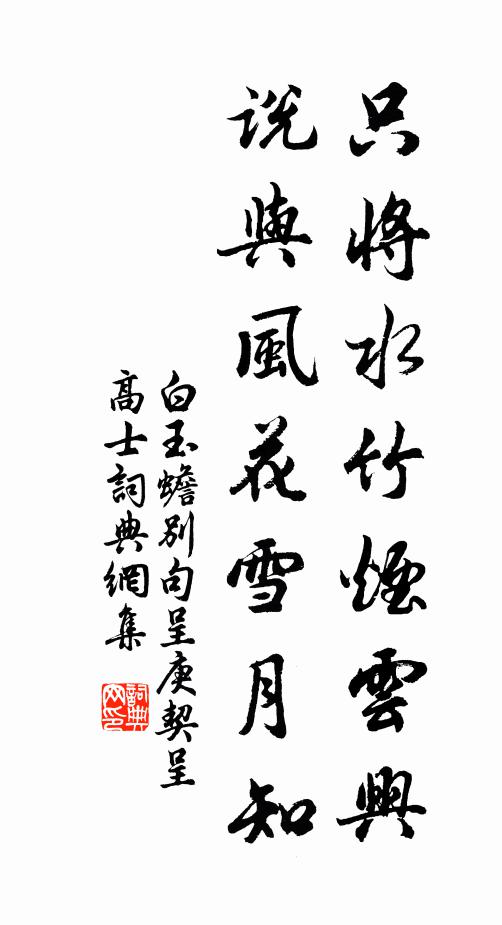 只將水竹煙雲興
說與風花雪月知
白玉蟾別句呈庚契呈
高士詞典網集
詞典网印